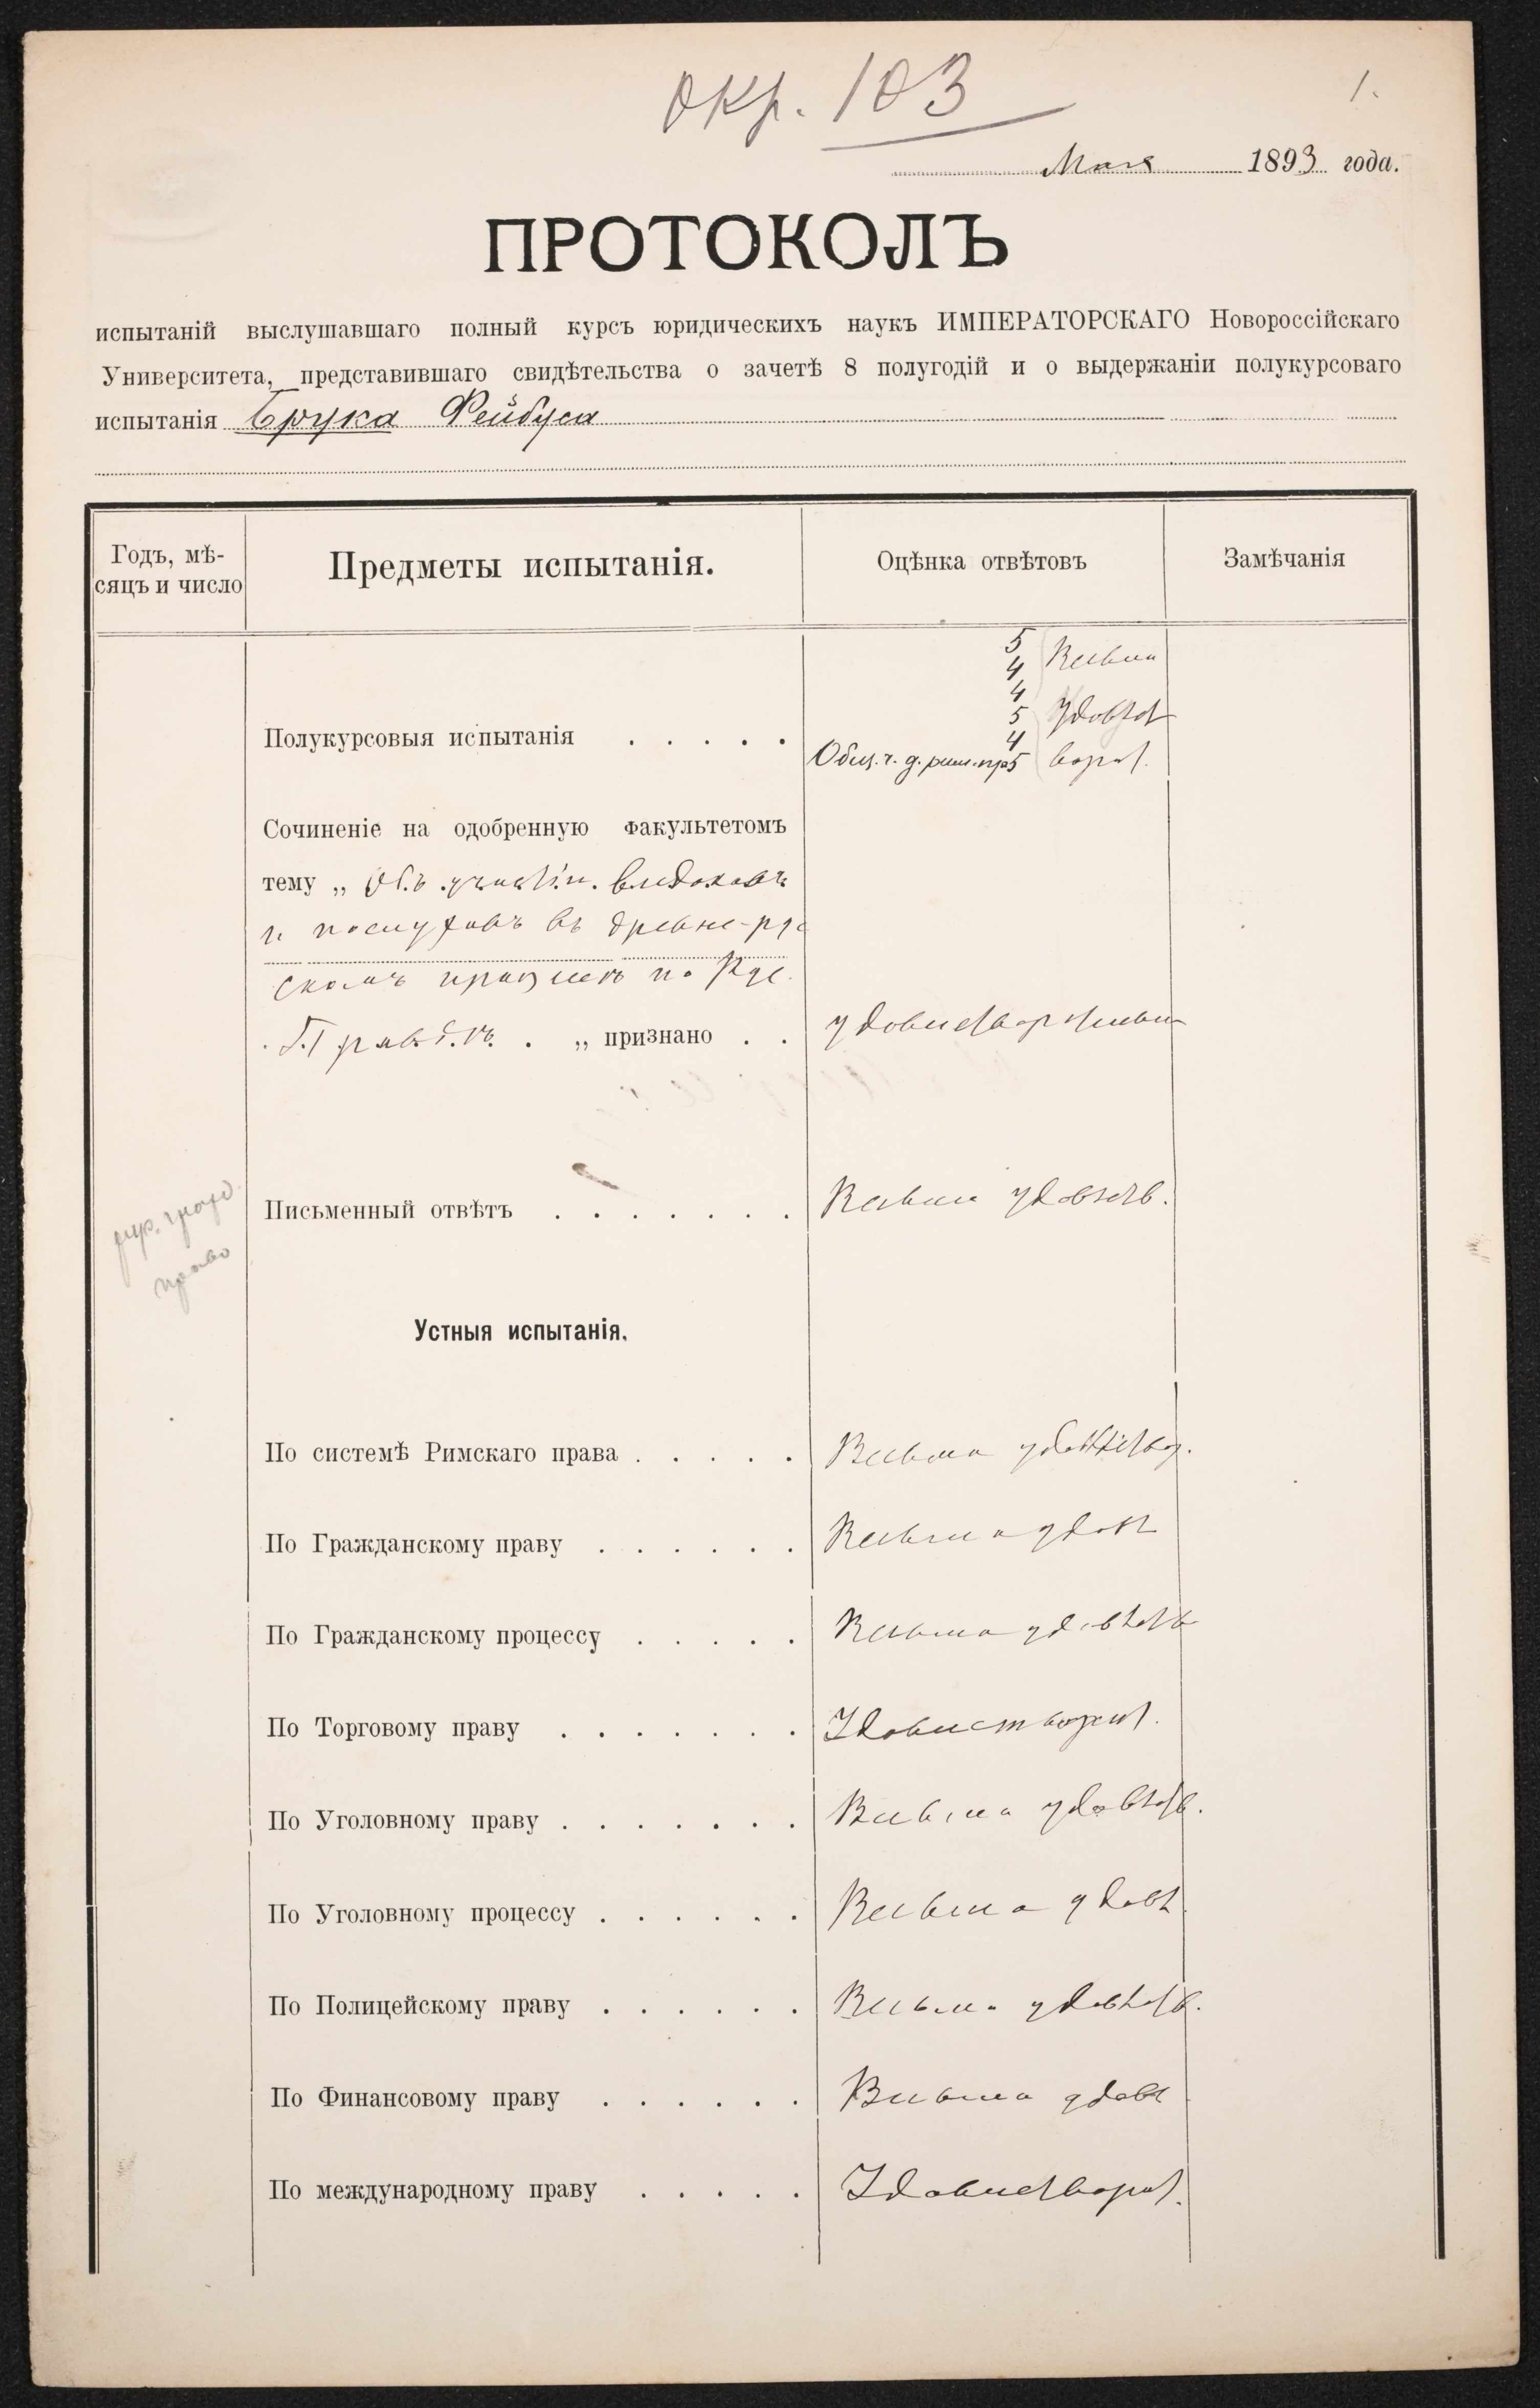 окр. 103
1.
Мая 1893 года.
ПРОТОКОЛЪ
испытаній выслушавшаго полный курсъ юридическихъ наукъ ИМПЕРАТОРСКАГО Новороссійскаго
Университета, представившаго свидѣтельства о зачетѣ 8 полугодій и о выдержаніи полукурсоваго
испытанія Брука Фейбуса
Годъ, мѣ-
сяцъ и число
Предметы испытанія.
Оцѣнка отвѣтовъ
Замѣчанія
5
4 Весьма
4
5 удовлет
4
Полукурсовыя испытанія . . . . .
Общ. ч. д. рим. пр 5 ворит.
Сочиненіе на одобренную факультетомъ
тему „ Объ участіи видоковъ
и послуховъ въ древне-рус
скомъ процессѣ по Рус.
Правдѣ. „ признано . . удовлетворительн
Письменный отвѣтъ . . . . . . . Весьма удовлетв.
рус. гражд.
право
Устныя испытанія.
По системѣ Римскаго права . . . . . Весьма удовлетвор.
По Гражданскому праву . . . . . . Весьма удовл
По Гражданскому процессу . . . . . Весьма удовлетв
По Торговому праву . . . . . . . Удовлетворит.
По Уголовному праву . . . . . . . Весьма удовлетв.
По Уголовному процессу . . . . . . Весьма удовл
По Полицейскому праву . . . . . . Весьма удовлетв.
По Финансовому праву . . . . . . Весьма удовл
По международному праву . . . . . Удовлетворит.